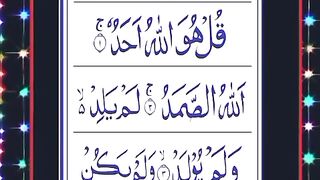 قُلْ هُوَ اللّٰهُ اَحَدٌ ۚ﴿۱﴾
اَللّٰهُ الصَّمَدُ ۚ﴿۲﴾ لَمْ يَلِدْ ۙ
وَلَمْ يُوْلَدْ ۙ﴿۳﴾ وَلَمْ يَكُنْ